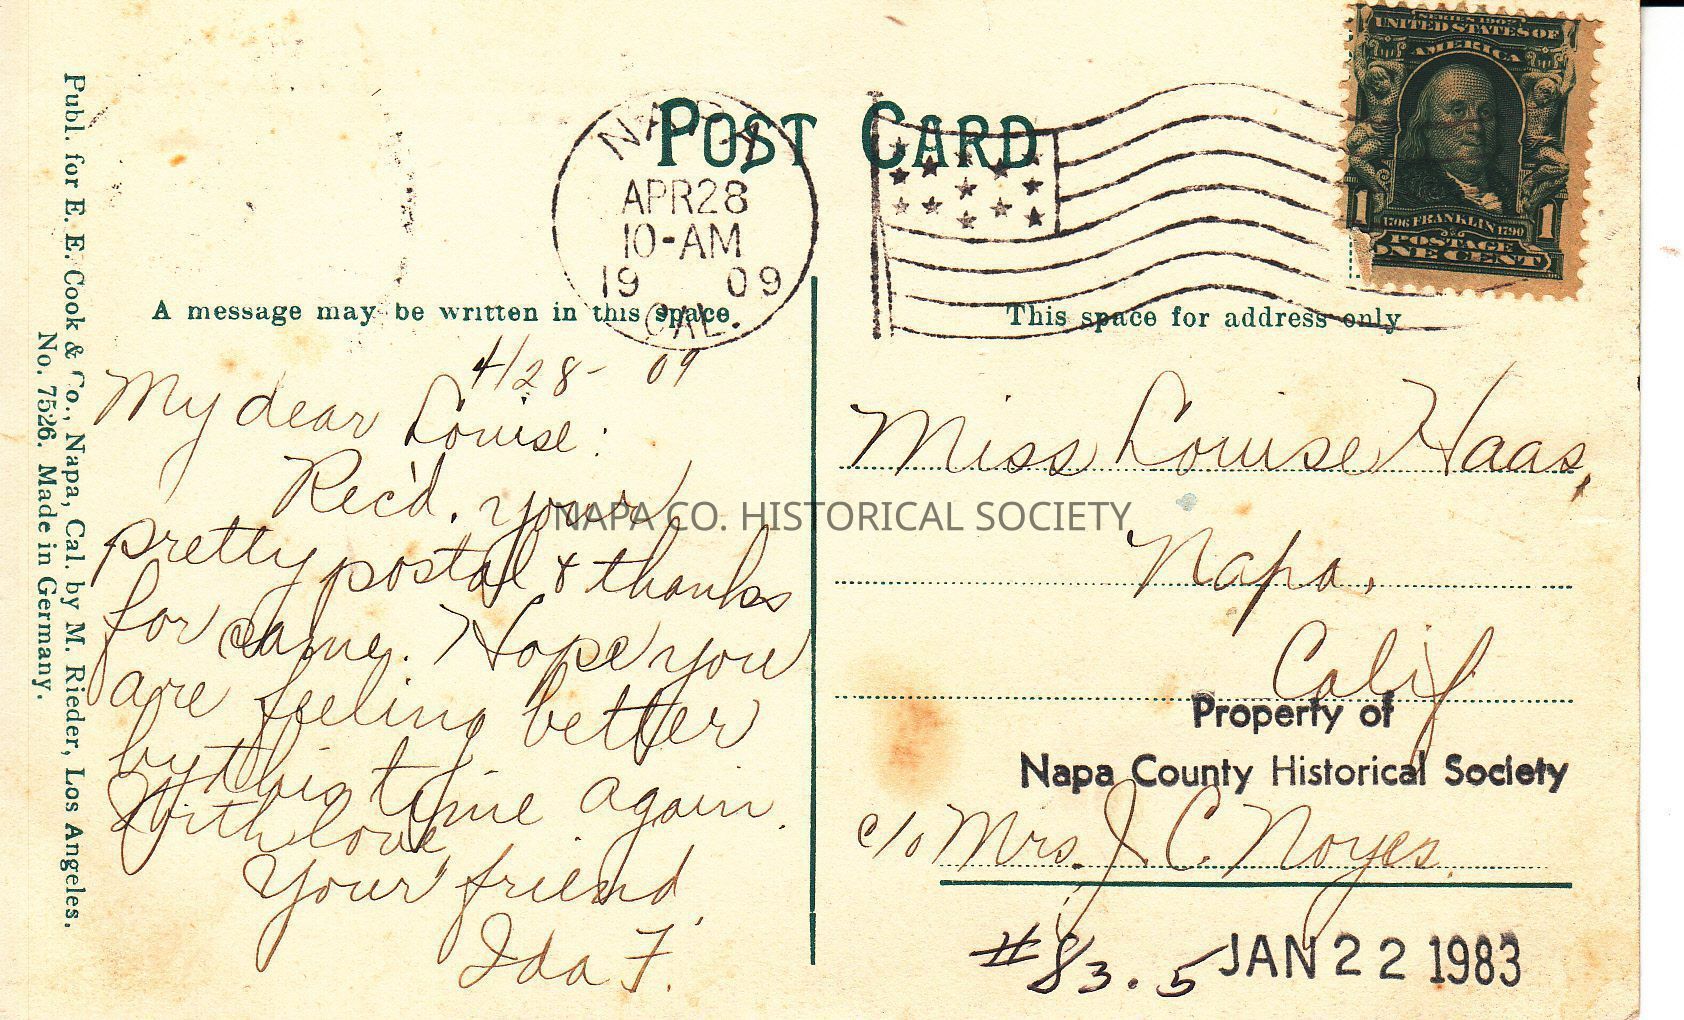 SERIES 1902
UNITED STATES OF
AMERICA
1 1706 FRANKLIN 1790 1
POSTAGE
ONE CENT
POST CARD
NAPA
APR 28
10-AM
19 09
CAL.
A message may be written in this space
This space for address only
4/28-09
My dear Louise:
Rec'd. your
pretty postal & thanks
for same. Hope you
are feeling better
by this time again.
With love
Your friend,
Ida F.
Miss Louise Haas,
Napa,
Calif
c/o Mrs. J. C. Noyes.
Property of
Napa County Historical Society
#83.5 JAN 22 1983
NAPA CO. HISTORICAL SOCIETY
Publ. for E. E. Cook & Co., Napa, Cal. by M. Rieder, Los Angeles.
No. 7526. Made in Germany.